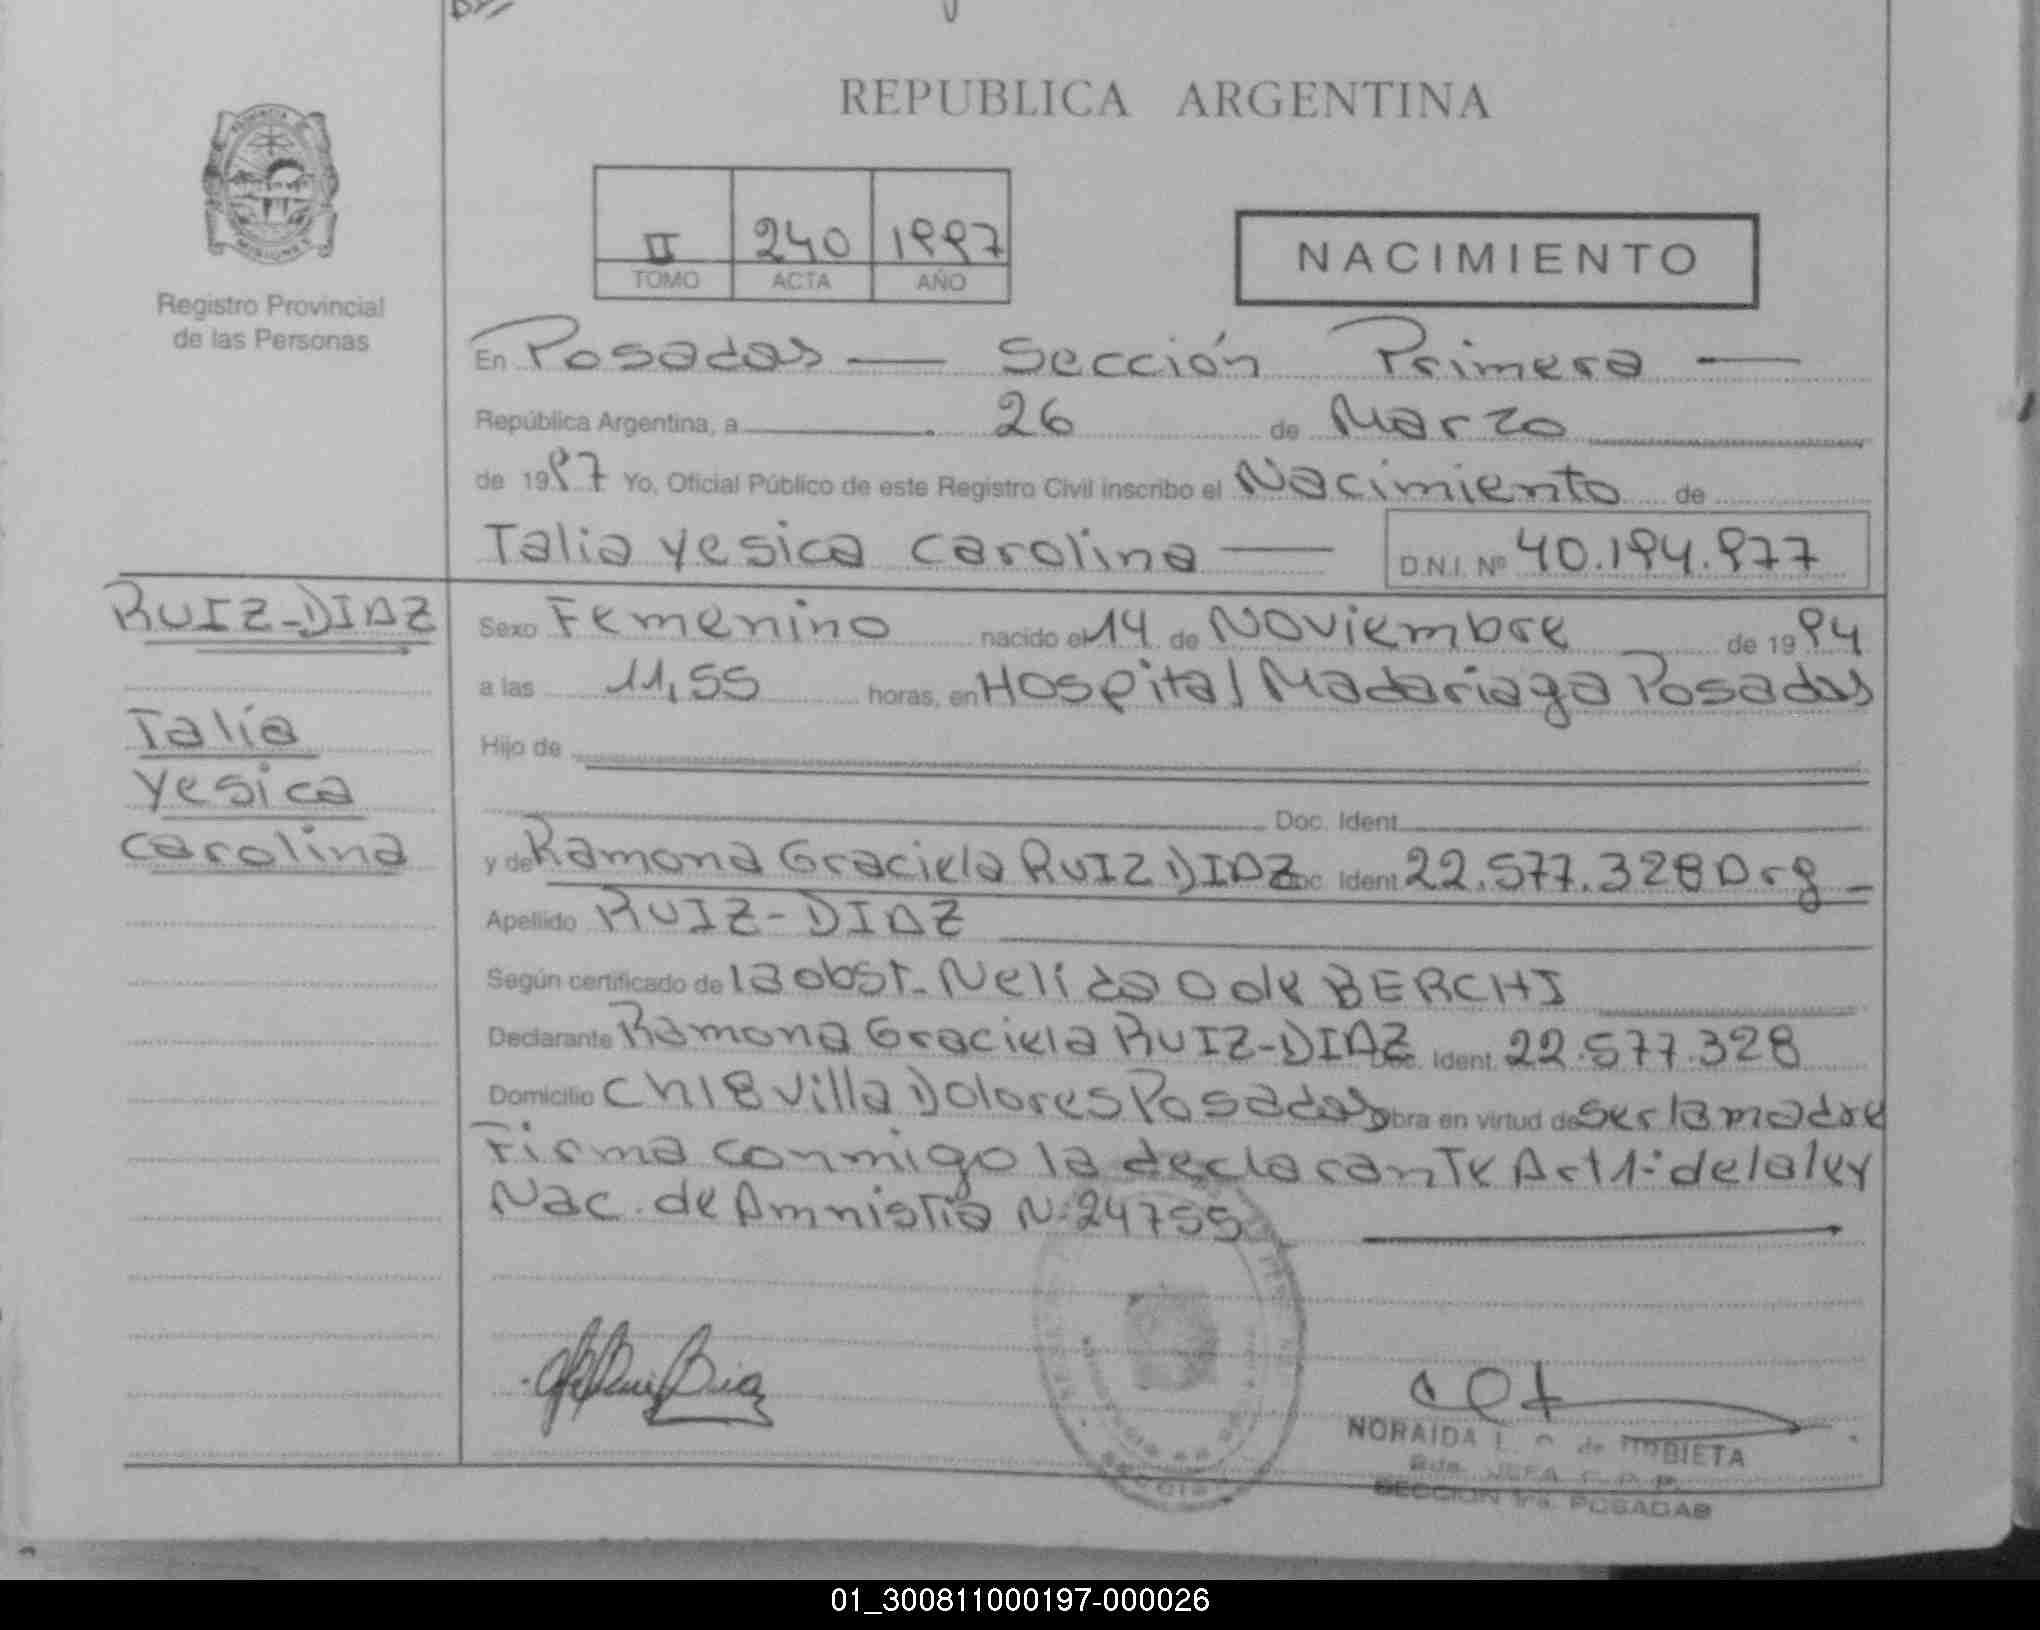 REPUBLICA ARGENTINA
Registro Provincial
de las Personas
II 240 1997
TOMO ACTA AÑO
NACIMIENTO
En Posadas — Sección Primera —
República Argentina, a 26 de Marzo
de 1997 Yo, Oficial Público de este Registro Civil inscribo el Nacimiento de
Talia Yesica Carolina — D.N.I. Nº 40.194.977
RUIZ-DIAZ
Talía
Yesica
Carolina
Sexo Femenino nacido el 14 de Noviembre de 1994
a las 11,55 horas, en Hospital Madariaga Posadas
Hijo de
Doc. Ident.
y de Ramona Graciela RUIZ DIAZ Doc. Ident. 22.577.328 Arg —
Apellido RUIZ-DIAZ
Según certificado de la obst. Nelida O de BERCHI
Declarante Ramona Graciela RUIZ-DIAZ Doc. Ident. 22.577.328
Domicilio Ch 18 Villa Dolores Posadas obra en virtud de ser la madre
Firma conmigo la declarante Art 1º de la ley
Nac. de Amnistia N. 24755
NORAIDA L. de
SECCION 1ra. POSADAS
01_300811000197-000026